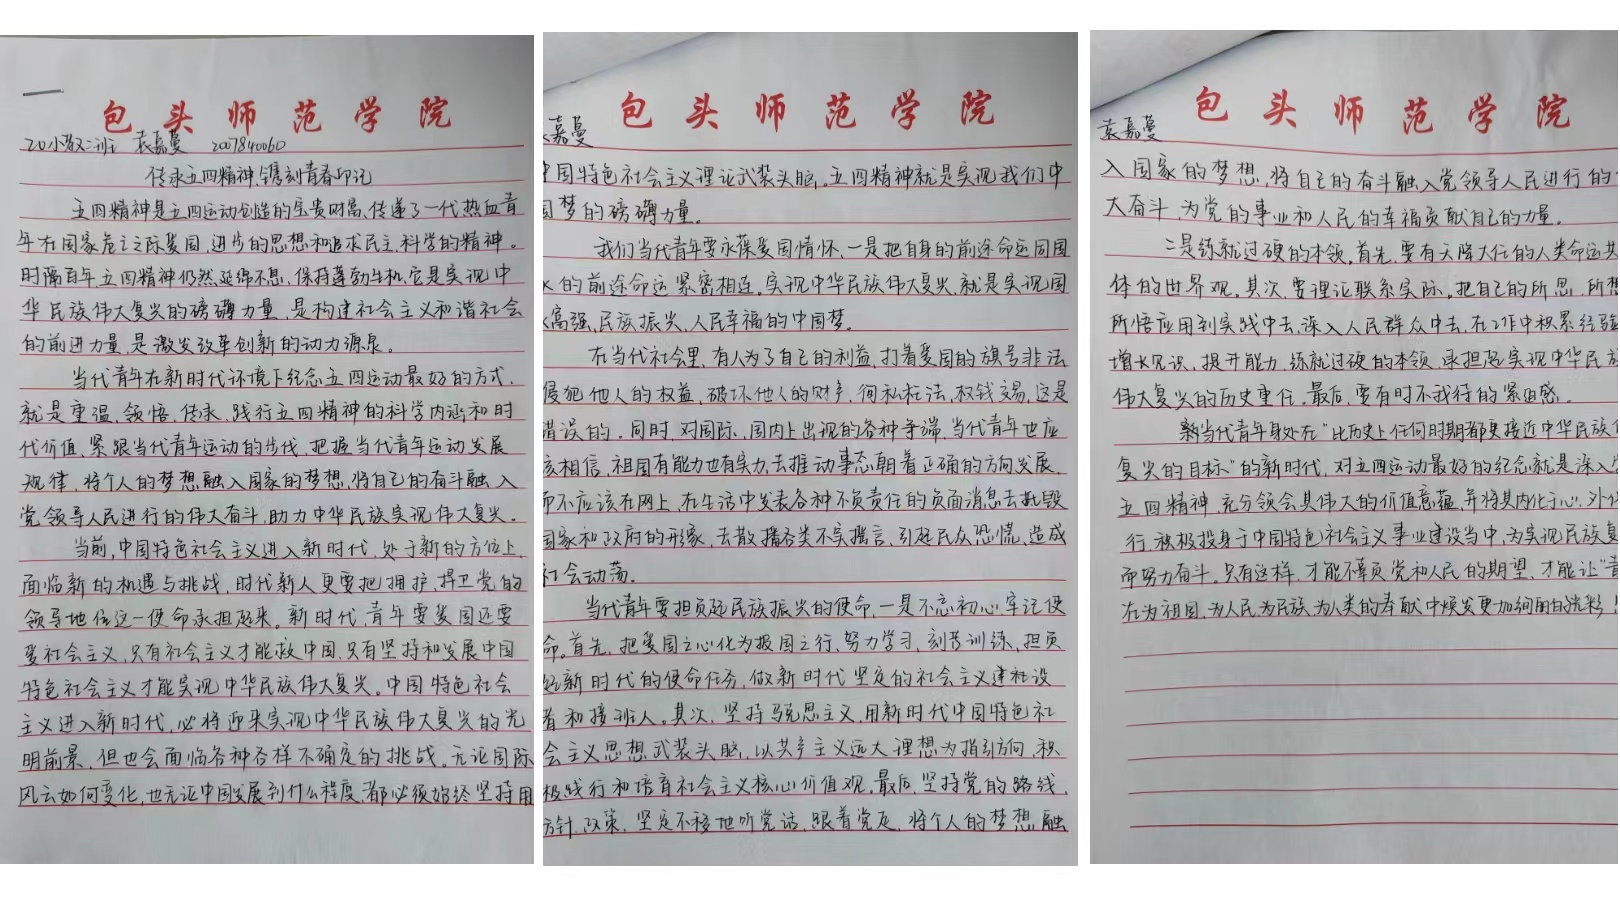 包头师范学院
20小教二班 袁嘉蔓 2007840060
传承五四精神,镌刻青春印记
五四精神是五四运动创造的宝贵财富,传递了一代热血青
年在国家危亡之际爱国,进步的思想和追求民主,科学的精神。
时隔百年五四精神仍然延绵不息,保持蓬勃生机,它是实现中
华民族伟大复兴的磅礴力量,是构建社会主义和谐社会
的前进力量,是激发改革创新的动力源泉。
当代青年在新时代环境下纪念五四运动最好的方式,
就是重温,领悟,传承,践行五四精神的科学内涵和时
代价值,紧跟当代青年运动的步伐,把握当代青年运动发展
规律,将个人的梦想融入国家的梦想,将自己的奋斗融入
党领导人民进行的伟大奋斗,助力中华民族实现伟大复兴。
当前,中国特色社会主义进入新时代,处于新的方位上,
面临新的机遇与挑战,时代新人更要把拥护,捍卫党的
领导地位这一使命承担起来。新时代,青年要爱国还要
爱社会主义,只有社会主义才能救中国,只有坚持和发展中国
特色社会主义才能实现中华民族伟大复兴。中国特色社会
主义进入新时代,必将迎来实现中华民族伟大复兴的光
明前景,但也会面临各种各样不确定的挑战。无论国际
风云如何变化,也无论中国发展到什么程度,都必须始终坚持用
包头师范学院
嘉蔓
中国特色社会主义理论武装头脑。五四精神就是实现我们中
国梦的磅礴力量。
我们当代青年要永葆爱国情怀,一是把自身的前途命运同国
的前途命运紧密相连。实现中华民族伟大复兴,就是实现国
高强,民族振兴,人民幸福的中国梦。
在当代社会里,有人为了自己的利益,打着爱国的旗号非法
侵犯他人的权益,破坏他人的财产,徇私枉法,权钱交易,这是
错误的。同时,对国际,国内上出现的各种争端,当代青年也应
该相信,祖国有能力也有实力,去推动事态朝着正确的方向发展,
而不应该在网上,在生活中发表各种不负责任的负面消息去抵毁
国家和政府的形象,去散播各类不实谣言,引起民众恐慌,造成
社会动荡。
当代青年要担负起民族振兴的使命,一是不忘初心,牢记使
命。首先,把爱国之心化为报国之行,努力学习,刻苦训练,担负
起新时代的使命任务,做新时代坚定的社会主义建设
者和接班人。其次,坚持马克思主义,用新时代中国特色社
会主义思想武装头脑,以共产主义远大理想为指引方向,积
极践行和培育社会主义核心价值观。最后,坚持党的路线,
方针,政策,坚定不移地听党话,跟着党走,将个人的梦想融
包头师范学院
袁嘉蔓
入国家的梦想,将自己的奋斗融入党领导人民进行的
大奋斗,为党的事业和人民的幸福贡献自己的力量。
二是练就过硬的本领。首先,要有天降大任的人类命运共
体的世界观。其次,要理论联系实际。把自己的所思,所想
所悟应用到实践中去,深入人民群众中去,在工作中积累经验
增长见识,提升能力,练就过硬的本领,承担起实现中华民族
伟大复兴的历史重任。最后,要有时不我待的紧迫感。
新当代青年身处在“比历史上任何时期都更接近中华民族伟
复兴的目标”的新时代,对五四运动最好的纪念就是深入学
五四精神,充分领会其伟大的价值意蕴,并将其内化于心,外化
行,积极投身于中国特色社会主义事业建设当中,为实现民族复
而努力奋斗。只有这样,才能不辜负党和人民的期望,才能让“青
在为祖国,为人民为民族,为人类的奉献中焕发更加绚丽的光彩,